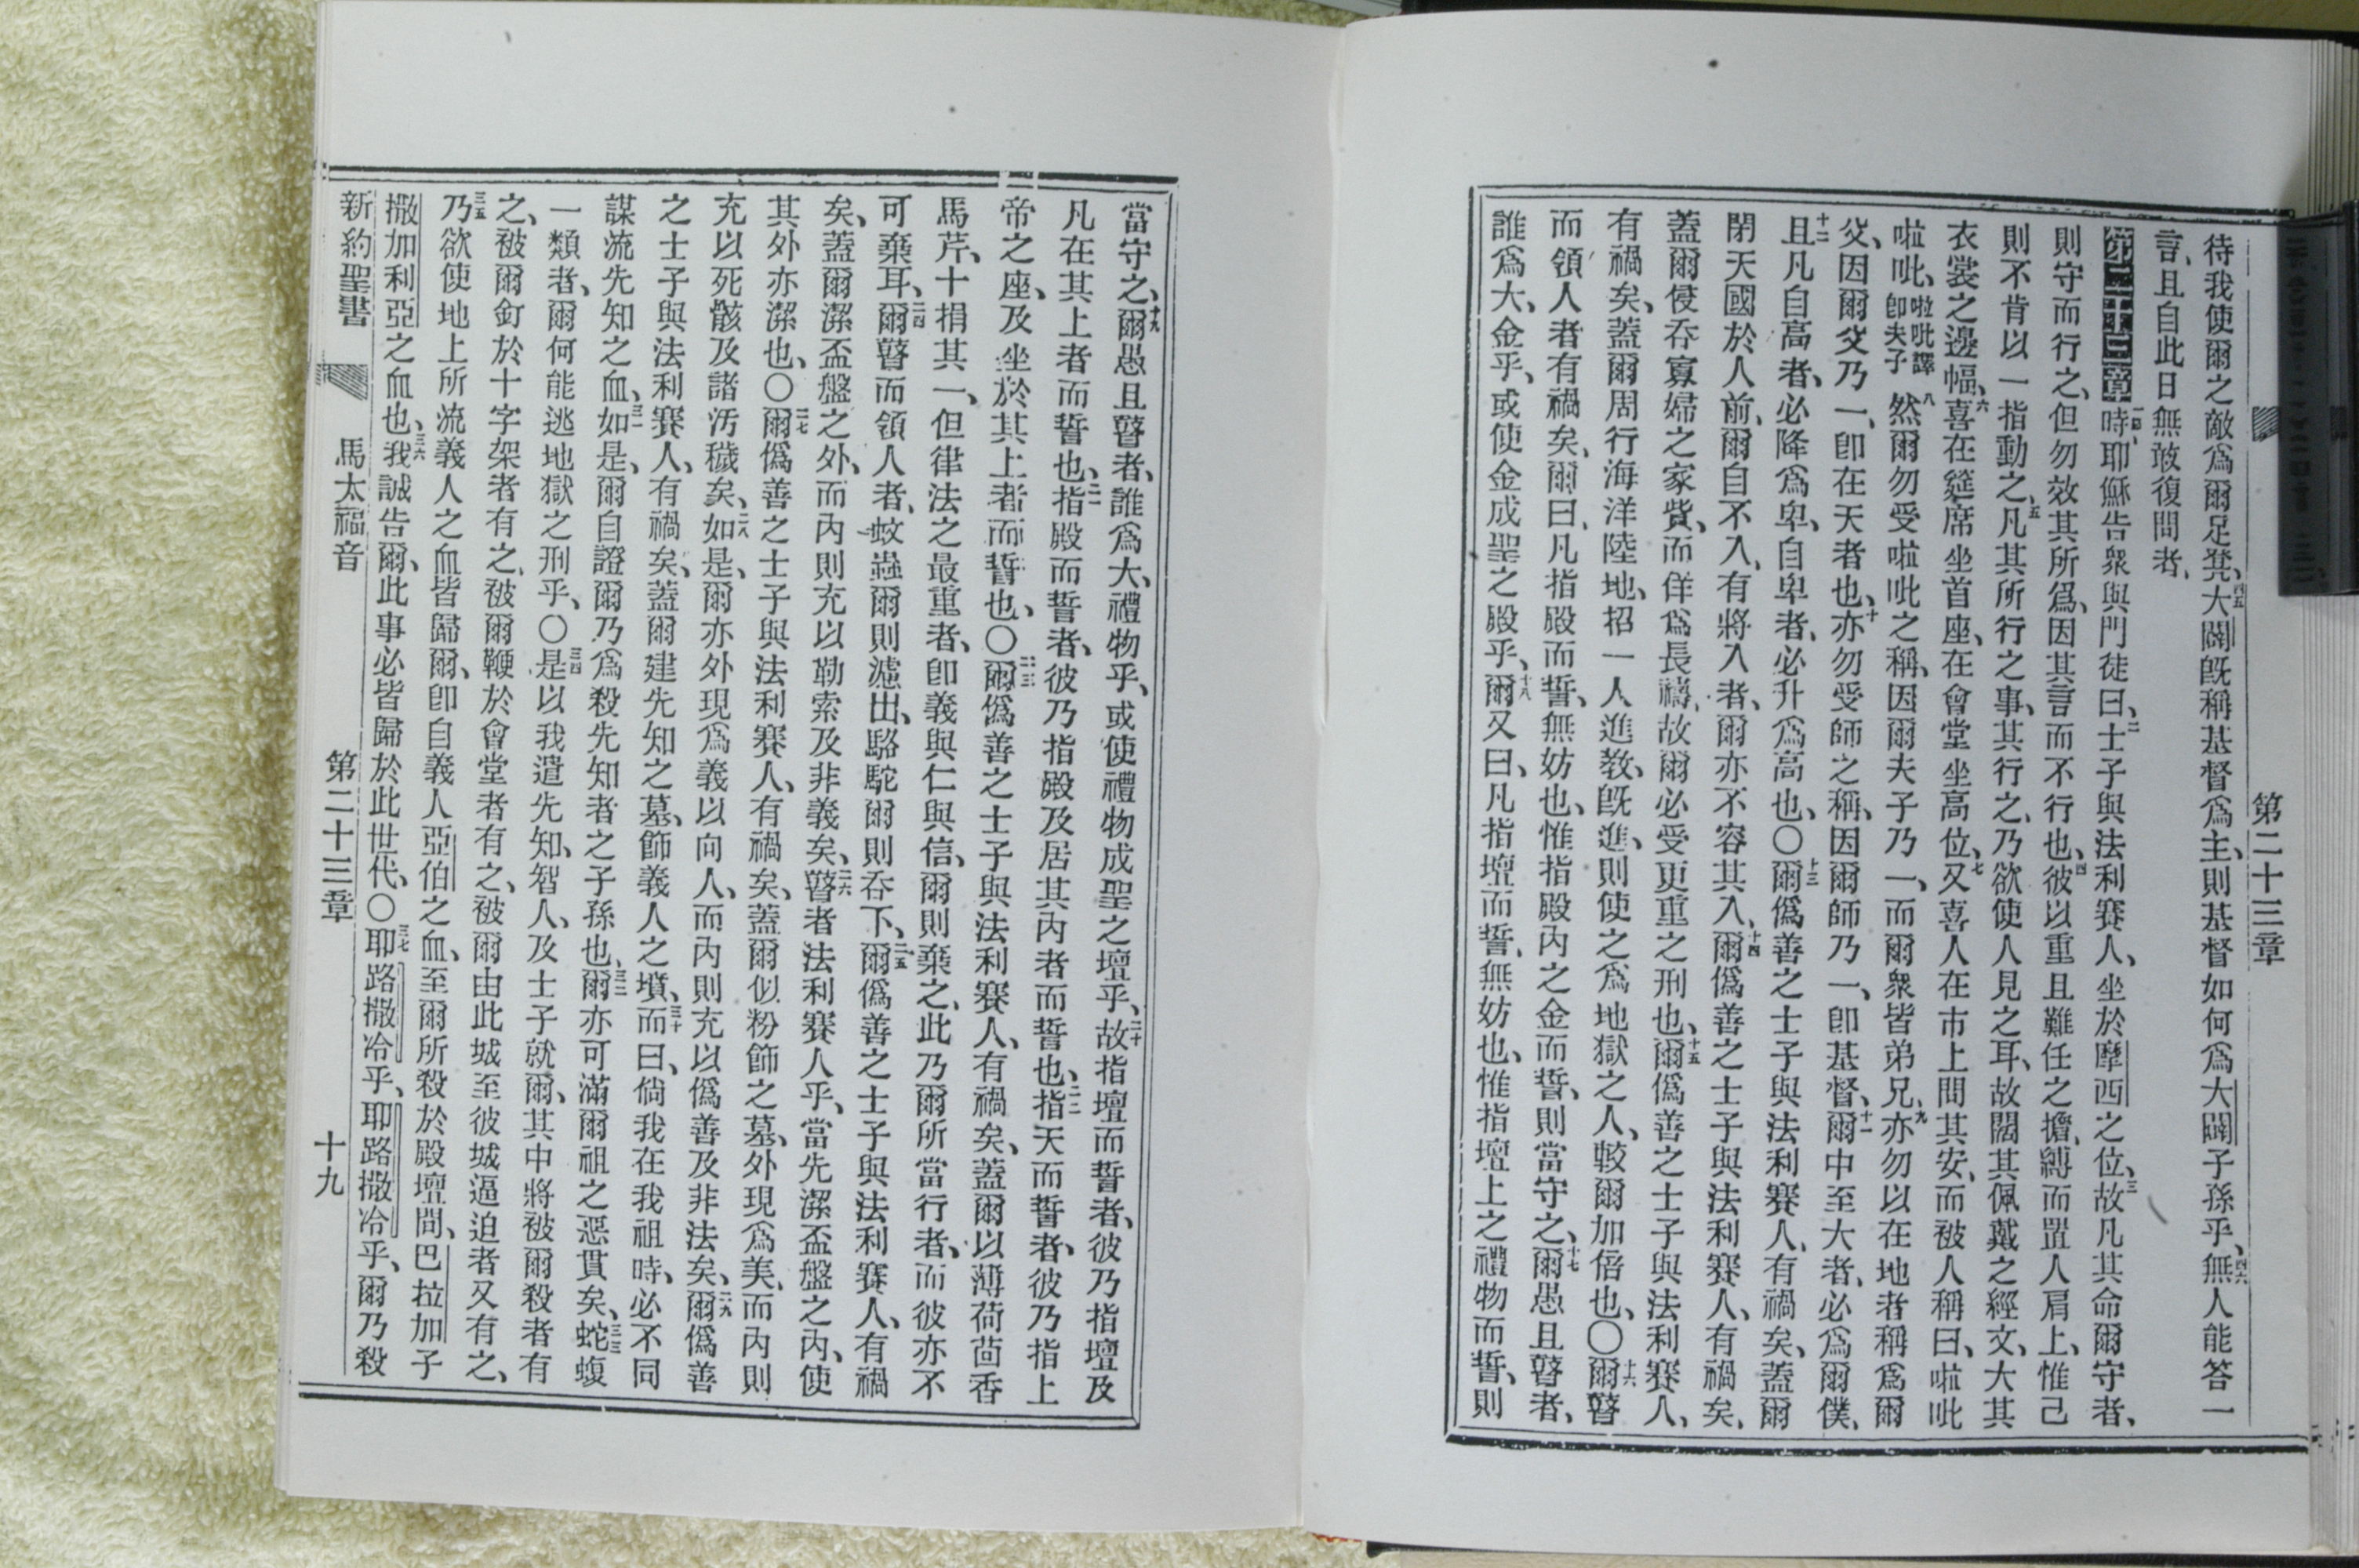 第二十三章
待我使爾之敵爲爾足凳、四五大闢既稱基督爲主、則基督如何爲大闢子孫乎、四六無人能答一
言、且自此日無敢復問者、
第二十三章 一時、耶穌告衆與門徒曰、二士子與法利賽人、坐於摩西之位、三故凡其命爾守者、
則守而行之、但勿效其所爲、因其言而不行也、四彼以重且難任之擔、縛而置人肩上、惟己
則不肯以一指動之、五凡其所行之事、其行之、乃欲使人見之耳、故闊其佩戴之經文、大其
衣裳之邊幅、六喜在筵席坐首座、在會堂坐高位、七又喜人在市上問其安、而被人稱曰、啦吡
啦吡、啦吡譯卽夫子 八然爾勿受啦吡之稱、因爾夫子乃一、而爾衆皆弟兄、九亦勿以在地者稱爲爾
父、因爾父乃一、卽在天者也、十亦勿受師之稱、因爾師乃一、卽基督、十一爾中至大者、必爲爾僕、
十二且凡自高者、必降爲卑、自卑者、必升爲高也、〇十三爾僞善之士子與法利賽人、有禍矣、蓋爾
閉天國於人前、爾自不入、有將入者、爾亦不容其入、十四爾僞善之士子與法利賽人、有禍矣、
蓋爾侵吞寡婦之家貲、而佯爲長禱、故爾必受更重之刑也、十五爾僞善之士子與法利賽人、
有禍矣、蓋爾周行海洋陸地、招一人進教、既進、則使之爲地獄之人、較爾加倍也、〇十六爾瞽
而領人者有禍矣、爾曰、凡指殿而誓、無妨也、惟指殿內之金而誓、則當守之、十七爾愚且瞽者、
誰爲大、金乎、或使金成聖之殿乎、十八爾又曰、凡指壇而誓、無妨也、惟指壇上之禮物而誓、則
當守之、十九爾愚且瞽者、誰爲大、禮物乎、或使禮物成聖之壇乎、二十故指壇而誓者、彼乃指壇及
凡在其上者而誓也、二一指殿而誓者、彼乃指殿及居其內者而誓也、二二指天而誓者、彼乃指上
帝之座、及坐於其上者而誓也、〇二三爾僞善之士子與法利賽人、有禍矣、蓋爾以薄荷茴香
馬芹、十捐其一、但律法之最重者、卽義與仁與信、爾則棄之、此乃爾所當行者、而彼亦不
可棄耳、二四爾瞽而領人者、蚊蟲爾則濾出、駱駝爾則吞下、二五爾僞善之士子與法利賽人、有禍
矣、蓋爾潔盃盤之外、而內則充以勒索及非義矣、二六瞽者法利賽人乎、當先潔盃盤之內、使
其外亦潔也、〇二七爾僞善之士子與法利賽人、有禍矣、蓋爾似粉飾之墓、外現爲美、而內則
充以死骸及諸汚穢矣、二八如是、爾亦外現爲義以向人、而內則充以僞善及非法矣、二九爾僞善
之士子與法利賽人、有禍矣、蓋爾建先知之墓、飾義人之墳、三十而曰、倘我在我祖時、必不同
謀流先知之血、三一如是、爾自證爾乃爲殺先知者之子孫也、三二爾亦可滿爾祖之惡貫矣、三三蛇蝮
一類者、爾何能逃地獄之刑乎、〇三四是以我遣先知、智人、及士子就爾、其中將被爾殺者有
之、被爾釘於十字架者有之、被爾鞭於會堂者有之、被爾由此城至彼城逼迫者又有之、
三五乃欲使地上所流義人之血皆歸爾、卽自義人亞伯之血、至爾所殺於殿壇間、巴拉加子
撒加利亞之血也、三六我誠告爾、此事必皆歸於此世代、〇三七耶路撒冷乎、耶路撒冷乎、爾乃殺
新約聖書 馬太福音 第二十三章 十九